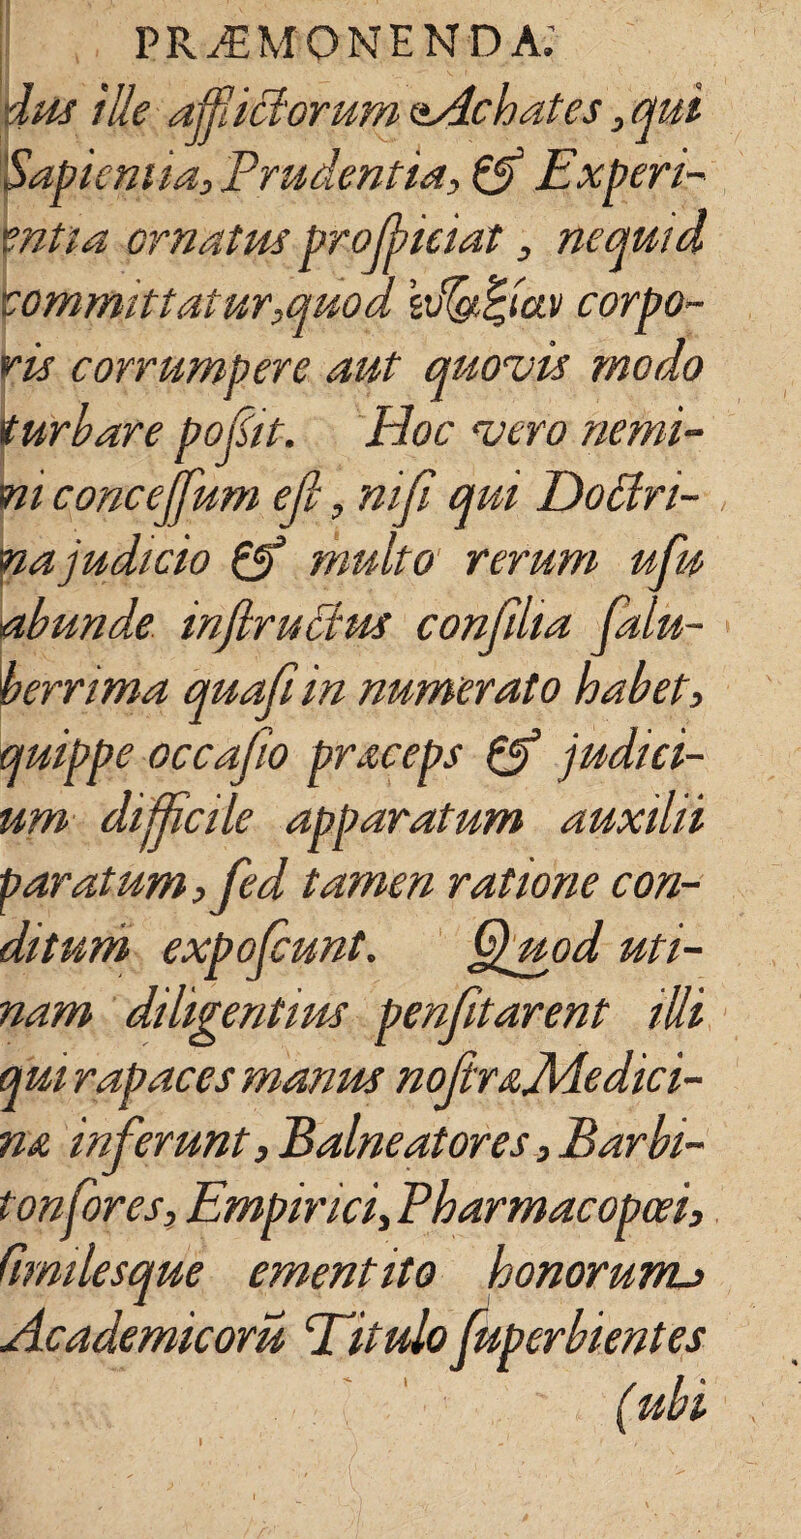 PRÆMONENDA.
dus ille afflictorum Achates, qui
Sapientia, Prudentia, & Experi-
entia ornatus proſpiciat, nequid
committatur, quod corpo-
ris corrumpere aut quovis modo
turbare poſsit. Hoc vero nemi-
ni conceſſum eſt, niſi qui Doctri-
na judicio & multo rerum uſu
abunde inſtructus conſilia ſalu-
berrima quaſi in numerato habet,
quippe occaſio præceps & judici-
um difficile apparatum auxilii
paratum, ſed tamen ratione con-
ditum expoſcunt. Quod uti-
nam diligentius penſitarent illi
qui rapaces manus noſtræ Medici-
næ inferunt, Balneatores, Barbi-
tonſores, Empirici, Pharmacopœi,
ſimilesque ementito honorum
Academicorū Titulo ſuperbientes
(ubi